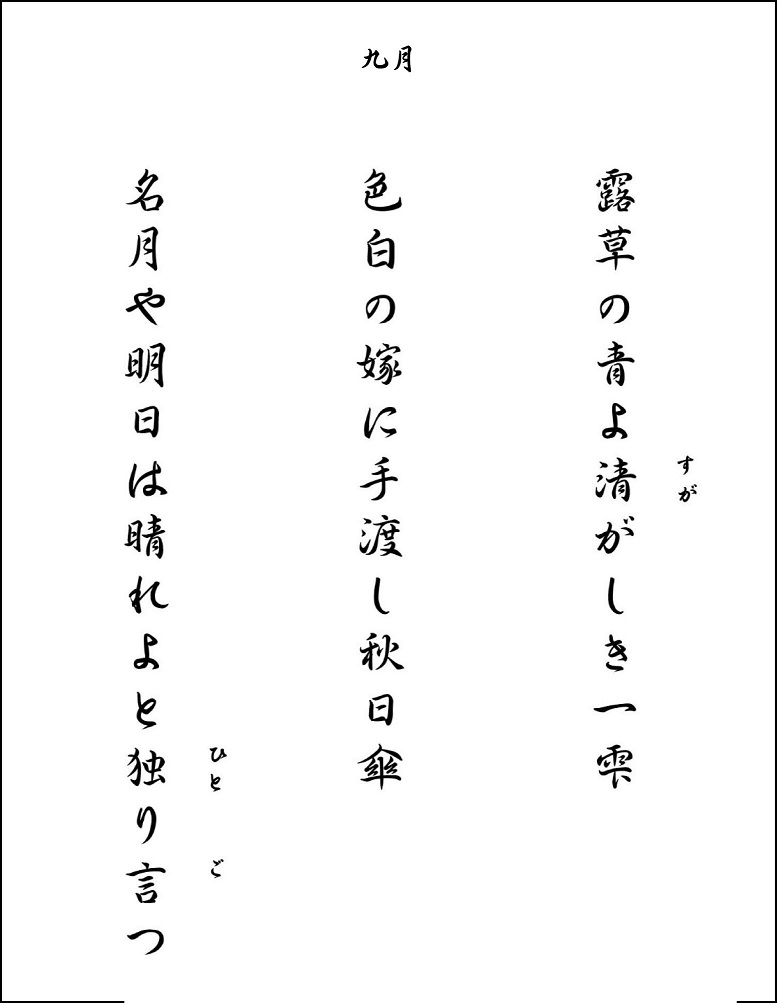 九月
露草の青よ清がしき一雫
すが
色白の嫁に手渡し秋日傘
名月や明日は晴れよと独り言つ
ひと ご